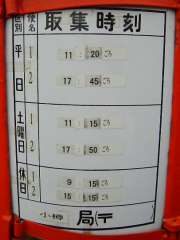 取集時刻
区別 便名
平日 1 11:20ごろ
2 17:45ごろ
土曜日 1 11:15ごろ
2 17:50ごろ
休日 1 9:15ごろ
2 15:15ごろ
局〒